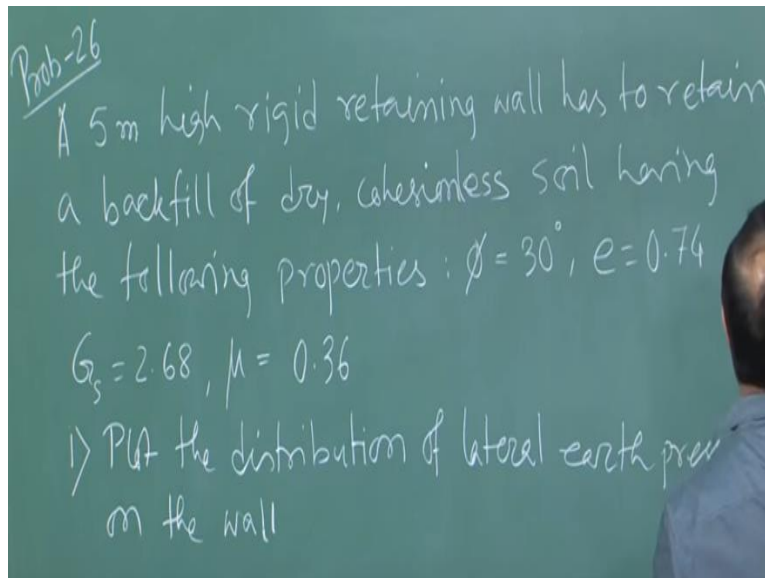 Prob-26
A 5m high rigid retaining wall has to retain
a backfill of dry, cohesionless soil having
the following properties : φ = 30°, e = 0.74
Gs = 2.68, μ = 0.36
1) Plot the distribution of lateral earth pres
on the wall